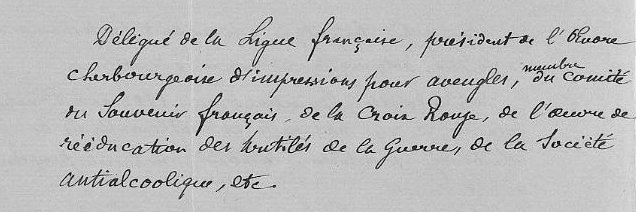 Délégué de la Ligue française, président de l'Œuvre
cherbourgeoise d'impressions pour aveugles, membre du Comité
du Souvenir français, de la Croix Rouge, de l'œuvre de
rééducation des Mutilés de la Guerre, de la Société
antialcoolique, etc.